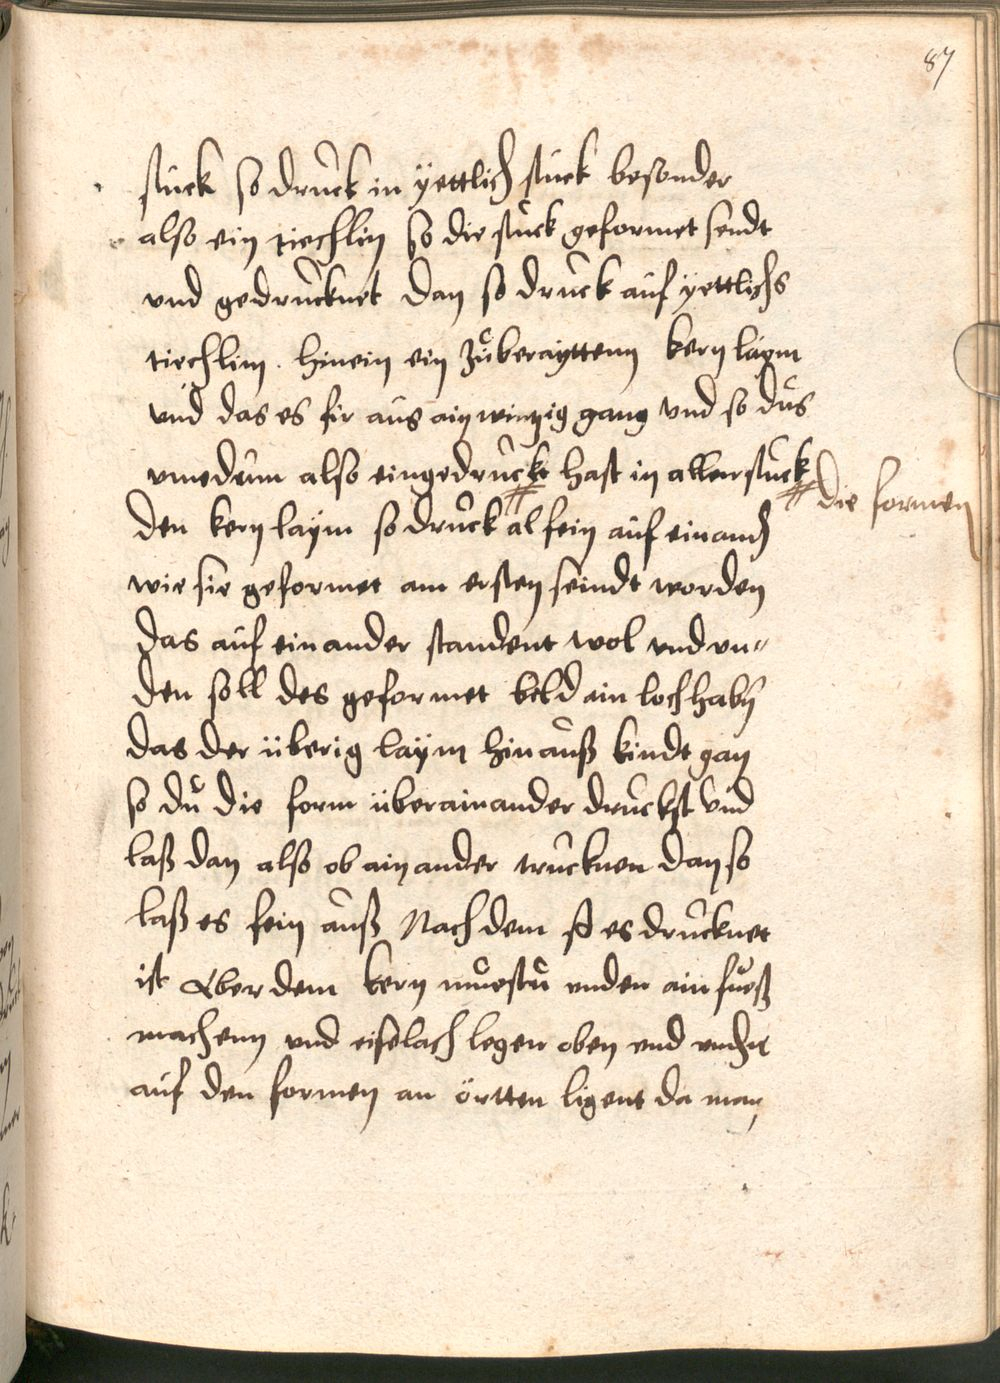 87
stuck so druck in yettlich stuck besonder
also ein tiechlin so die stuck geformet sendt
vnd gedrucknet dan so druck auf yettlichs
tiechlin . hinein ein zuberayttenn kern laym
vnd das es fir aus ain winzig gang vnd so dus
vmedum also eingedruckt hast in allen stuck
# die formen
den kern laym so druck # al fein auf einand
wie sie geformet am ersten seindt worden
das auf ein ander standent wol vnd vn"
den soll des geformet beld ain loch habn
das der überig laym hinauß kindt gan
so du die form über ainander druckst vnd
laß dan also ob ain ander trucknen dan so
laß es fein auß Nach dem es drucknet
ist Aber dem kern muestu vnden ain fueß
machenn vnd eiselach legen oben vnd vnden
auf den formen an örtten ligent da man